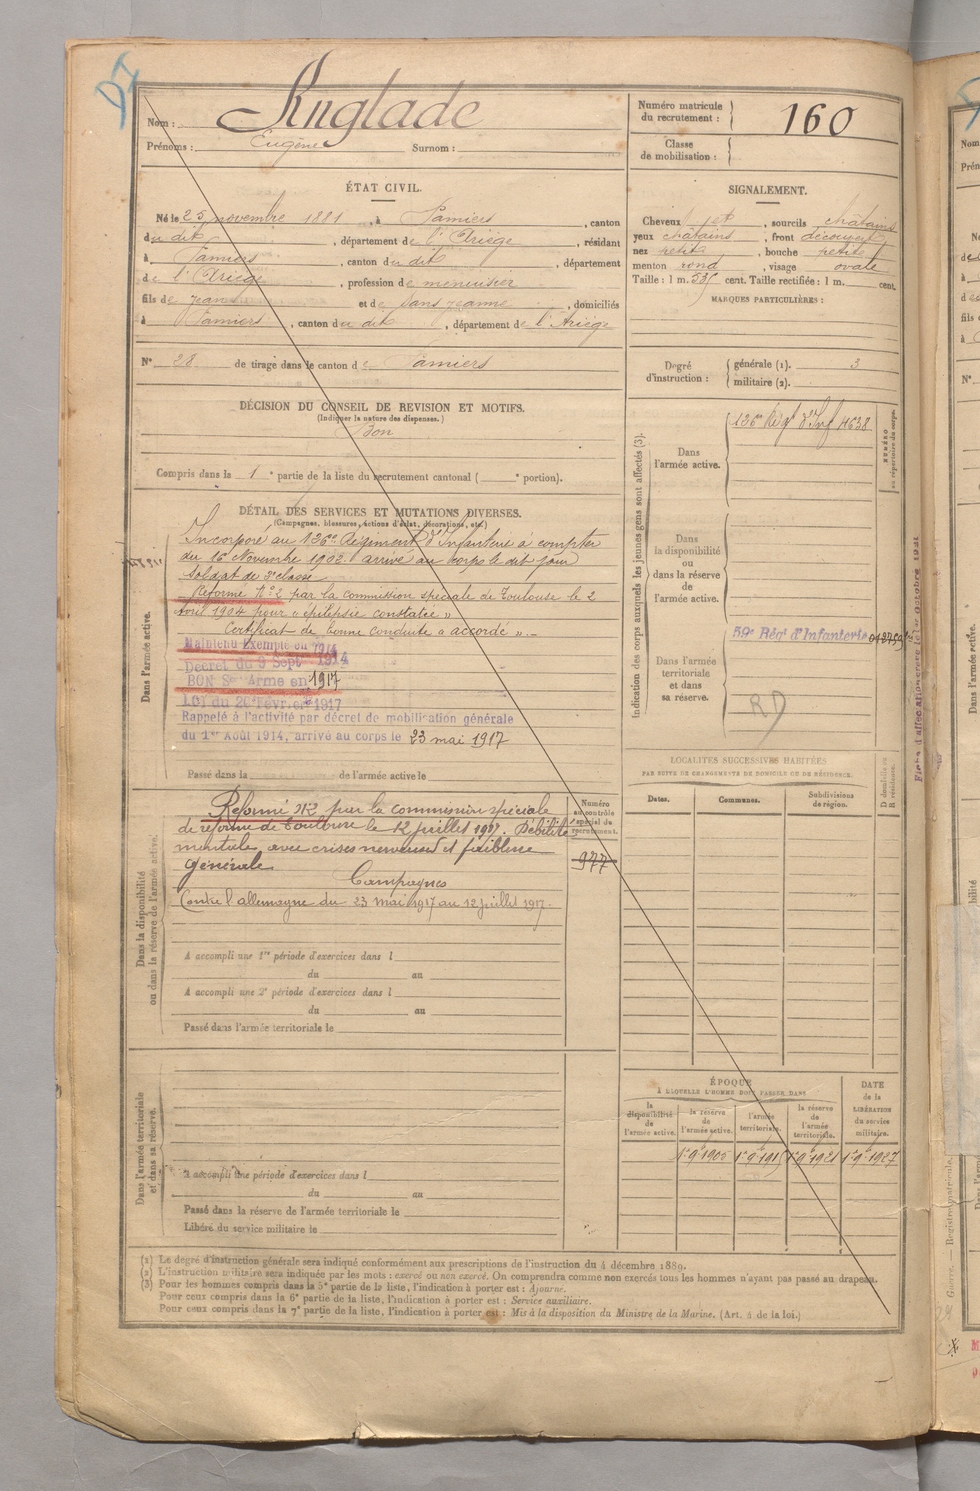 Nom : Anglade
Prénoms : Eugène Surnom :
Numéro matricule du recrutement : 160
Classe de mobilisation :
ÉTAT CIVIL.
Né le 25 novembre 1881, à Pamiers, canton
du dit, département de l'Ariège, résidant
à Pamiers, canton du dit, département
de l'Ariège, profession de menuisier
fils de Jean et de Sans Jeanne, domiciliés
à Pamiers, canton du dit, département de l'Ariège
N° 28 de tirage dans le canton de Pamiers
SIGNALEMENT.
Cheveux et sourcils châtains
yeux châtains, front découvert
nez petit, bouche petite
menton rond, visage ovale
Taille : 1 m. 535 cent. Taille rectifiée : 1 m. cent.
MARQUES PARTICULIÈRES :
Degré d'instruction : générale (1). 3
militaire (2).
DÉCISION DU CONSEIL DE REVISION ET MOTIFS.
(Indiquer la nature des dispenses.)
Bon
Compris dans la 1e partie de la liste du recrutement cantonal ( e portion).
DÉTAIL DES SERVICES ET MUTATIONS DIVERSES.
(Campagnes, blessures, actions d'éclat, décorations, etc.)
Dans l'armée active.
Incorporé au 126e Régiment d'Infanterie à compter
du 16 Novembre 1902. arrivé au corps le dit jour
soldat de 2e classe
Réformé N° 2 par la commission spéciale de Toulouse le 2
Avril 1904 pour « épilepsie constatée »
Certificat de bonne conduite « accordé ». -
Maintenu Exempté en 1914
Décret du 9 Septre 1914
BON Sce Armé en 1917
Loi du 20 Février 1917
Rappelé à l'activité par décret de mobilisation générale
du 1er Août 1914, arrivé au corps le 23 mai 1917
Passé dans la de l'armée active le
Dans la disponibilité ou dans la réserve de l'armée active.
Réformé N°2 par la commission spéciale
de réforme de Toulouse le 12 juillet 1917. Débilité
mentale, avec crises nerveuses et faiblesse
générale
Campagnes
Contre l'allemagne du 23 mai 1917 au 12 juillet 1917.
Numéro au contrôle spécial du recrutement.
977
A accompli une 1re période d'exercices dans l
du au
A accompli une 2e période d'exercices dans l
du au
Passé dans l'armée territoriale le
Dans l'armée territoriale et dans sa réserve.
A accompli une période d'exercices dans l
du au
Passé dans la réserve de l'armée territoriale le
Libéré du service militaire le
Indication des corps auxquels les jeunes gens sont affectés (3).
NUMÉRO au répertoire du corps.
Dans l'armée active.
126e Régt d'Inf 4638
Dans la disponibilité ou dans la réserve de l'armée active.
Dans l'armée territoriale et dans sa réserve.
59e Régt d'Infanterie
RD
LOCALITÉS SUCCESSIVES HABITÉES
PAR SUITE DE CHANGEMENTS DE DOMICILE OU DE RÉSIDENCE.
Dates. Communes. Subdivisions de région. D domicile ou R résidence.
ÉPOQUE
À LAQUELLE L'HOMME DOIT PASSER DANS
la disponibilité de l'armée active. la réserve de l'armée active. l'armée territoriale. la réserve de l'armée territoriale. DATE de la LIBÉRATION du service militaire.
1er 9bre 1905 1er 9bre 1915 1er 9bre 1921 1er 9bre 1927
(1) Le degré d'instruction générale sera indiqué conformément aux prescriptions de l'instruction du 4 décembre 1889.
(2) L'instruction militaire sera indiquée par les mots : exercé ou non exercé. On comprendra comme non exercés tous les hommes n'ayant pas passé au drapeau.
(3) Pour les hommes compris dans la 5e partie de la liste, l'indication à porter est : Ajourné.
Pour ceux compris dans la 6e partie de la liste, l'indication à porter est : Service auxiliaire.
Pour ceux compris dans la 7e partie de la liste, l'indication à porter est : Mis à la disposition du Ministre de la Marine. (Art. 4 de la loi.)